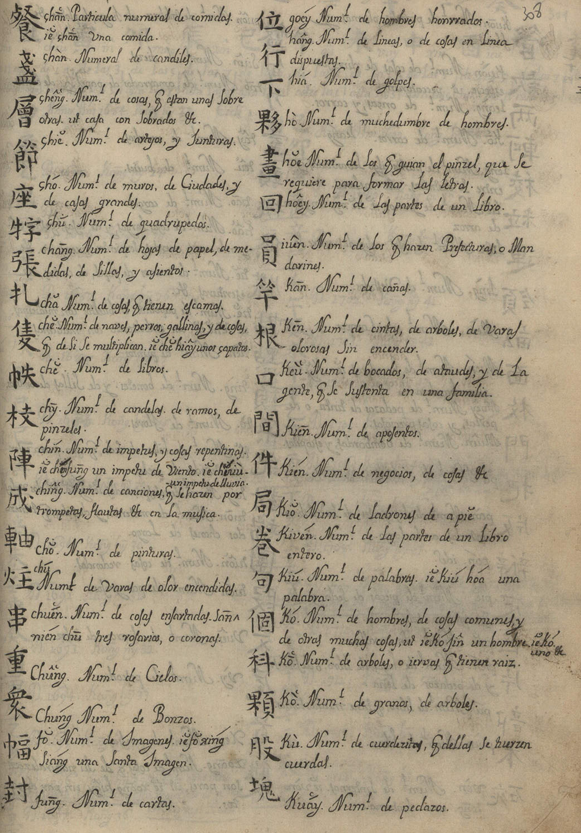 308
餐 chān Particula numeral de comidas.
iĕ chān una comida.
盞 chàn Numeral de candiles.
層 chêng. Num.l de cosas, q̃ estan unas sobre
otras. ut casa con sobrados &c.
節 chiĕ. Num.l de artejos, y Junturas.
座 chó. Num.l de muros, de Ciudades, y
de casas grandes.
牸 chú. Num.l de quadrupedos.
張 chāng Num.l de hojas de papel, de me-
didas, de sillas, y asientos.
扎 chă Num.l de cosas q̃ tienen escamas.
隻 chĕ Num.l de naves, perros, gallinas, y de cosas,
q̃ de si se multiplican. iĕ chĕ hiây unos çapatos.
帙 chĕ. Num.l de libros.
枝 chȳ. Num.l de candelas. de ramos, de
pinzeles.
陣 chín. Num.l de impetus, y cosas repentinas.
un impetu de viento.
un impetu de lluvia.
成 chîng. Num.l de canciones, q̃ se hazen por
trompetas, flautas &c en la musica.
軸 chŏ. Num.l de pinturas.
炷 chú
Num.l de varas de olor encendidas.
串 chuén. Num.l de cosas ensartadas. Sān
nién chū tres rosarios, o coronas.
重 Chûng. Num.l de Cielos.
衆 Chúng Num.l de Bonzos.
幅 fŏ. Num.l de Imagenes. iĕ fŏ xíng
siang una Santa Imagen.
封 fung. Num.l de cartas.
位 goéy Num.l de hombres honrrados.
行 hâng. Num.l de lineas, o de cosas en linea
dispuestas.
下 hiá. Num.l de golpes.
夥 hò Num.l de muchedumbre de hombres.
畫 hoĕ Num.l de los q̃ guian el pinzel, que se
requiere para formar las letras.
回 hoêy Num.l de las partes de un Libro.
員 iuên. Num.l de los q̃ hazen Prefecturas, o Man
darines.
竿 kān. Num.l de cañas.
根 Kēn. Num.l de cintas, de arboles, de varas
olorosas sin encender.
口 Keù. Num.l de bocados, de ataudes, y de la
gente, q̃ se sustenta en una familia.
間 Kiēn. Num.l de aposentos.
件 Kién. Num.l de negocios, de cosas &c
局 Kiŏ. Num.l de ladrones de a pie
卷 Kivén. Num.l de las partes de un Libro
entero.
句 Kiú. Num.l de palabras. iĕ Kiú hoá una
palabra.
個 Kó. Num.l de hombres, de cosas comunes, y
de otras muchas cosas, ut iĕ kó jîn un hombre, iĕ kó,
uno &c
科 Kō. Num.l de arboles, o iervas q̃ tienen raiz.
顆 Kŏ. Num.l de granos, de arboles.
股 Kù. Num.l de cuerdezitas, q̃ dellas se tuerzen
cuerdas.
塊 Kuáy. Num.l de pedazos.